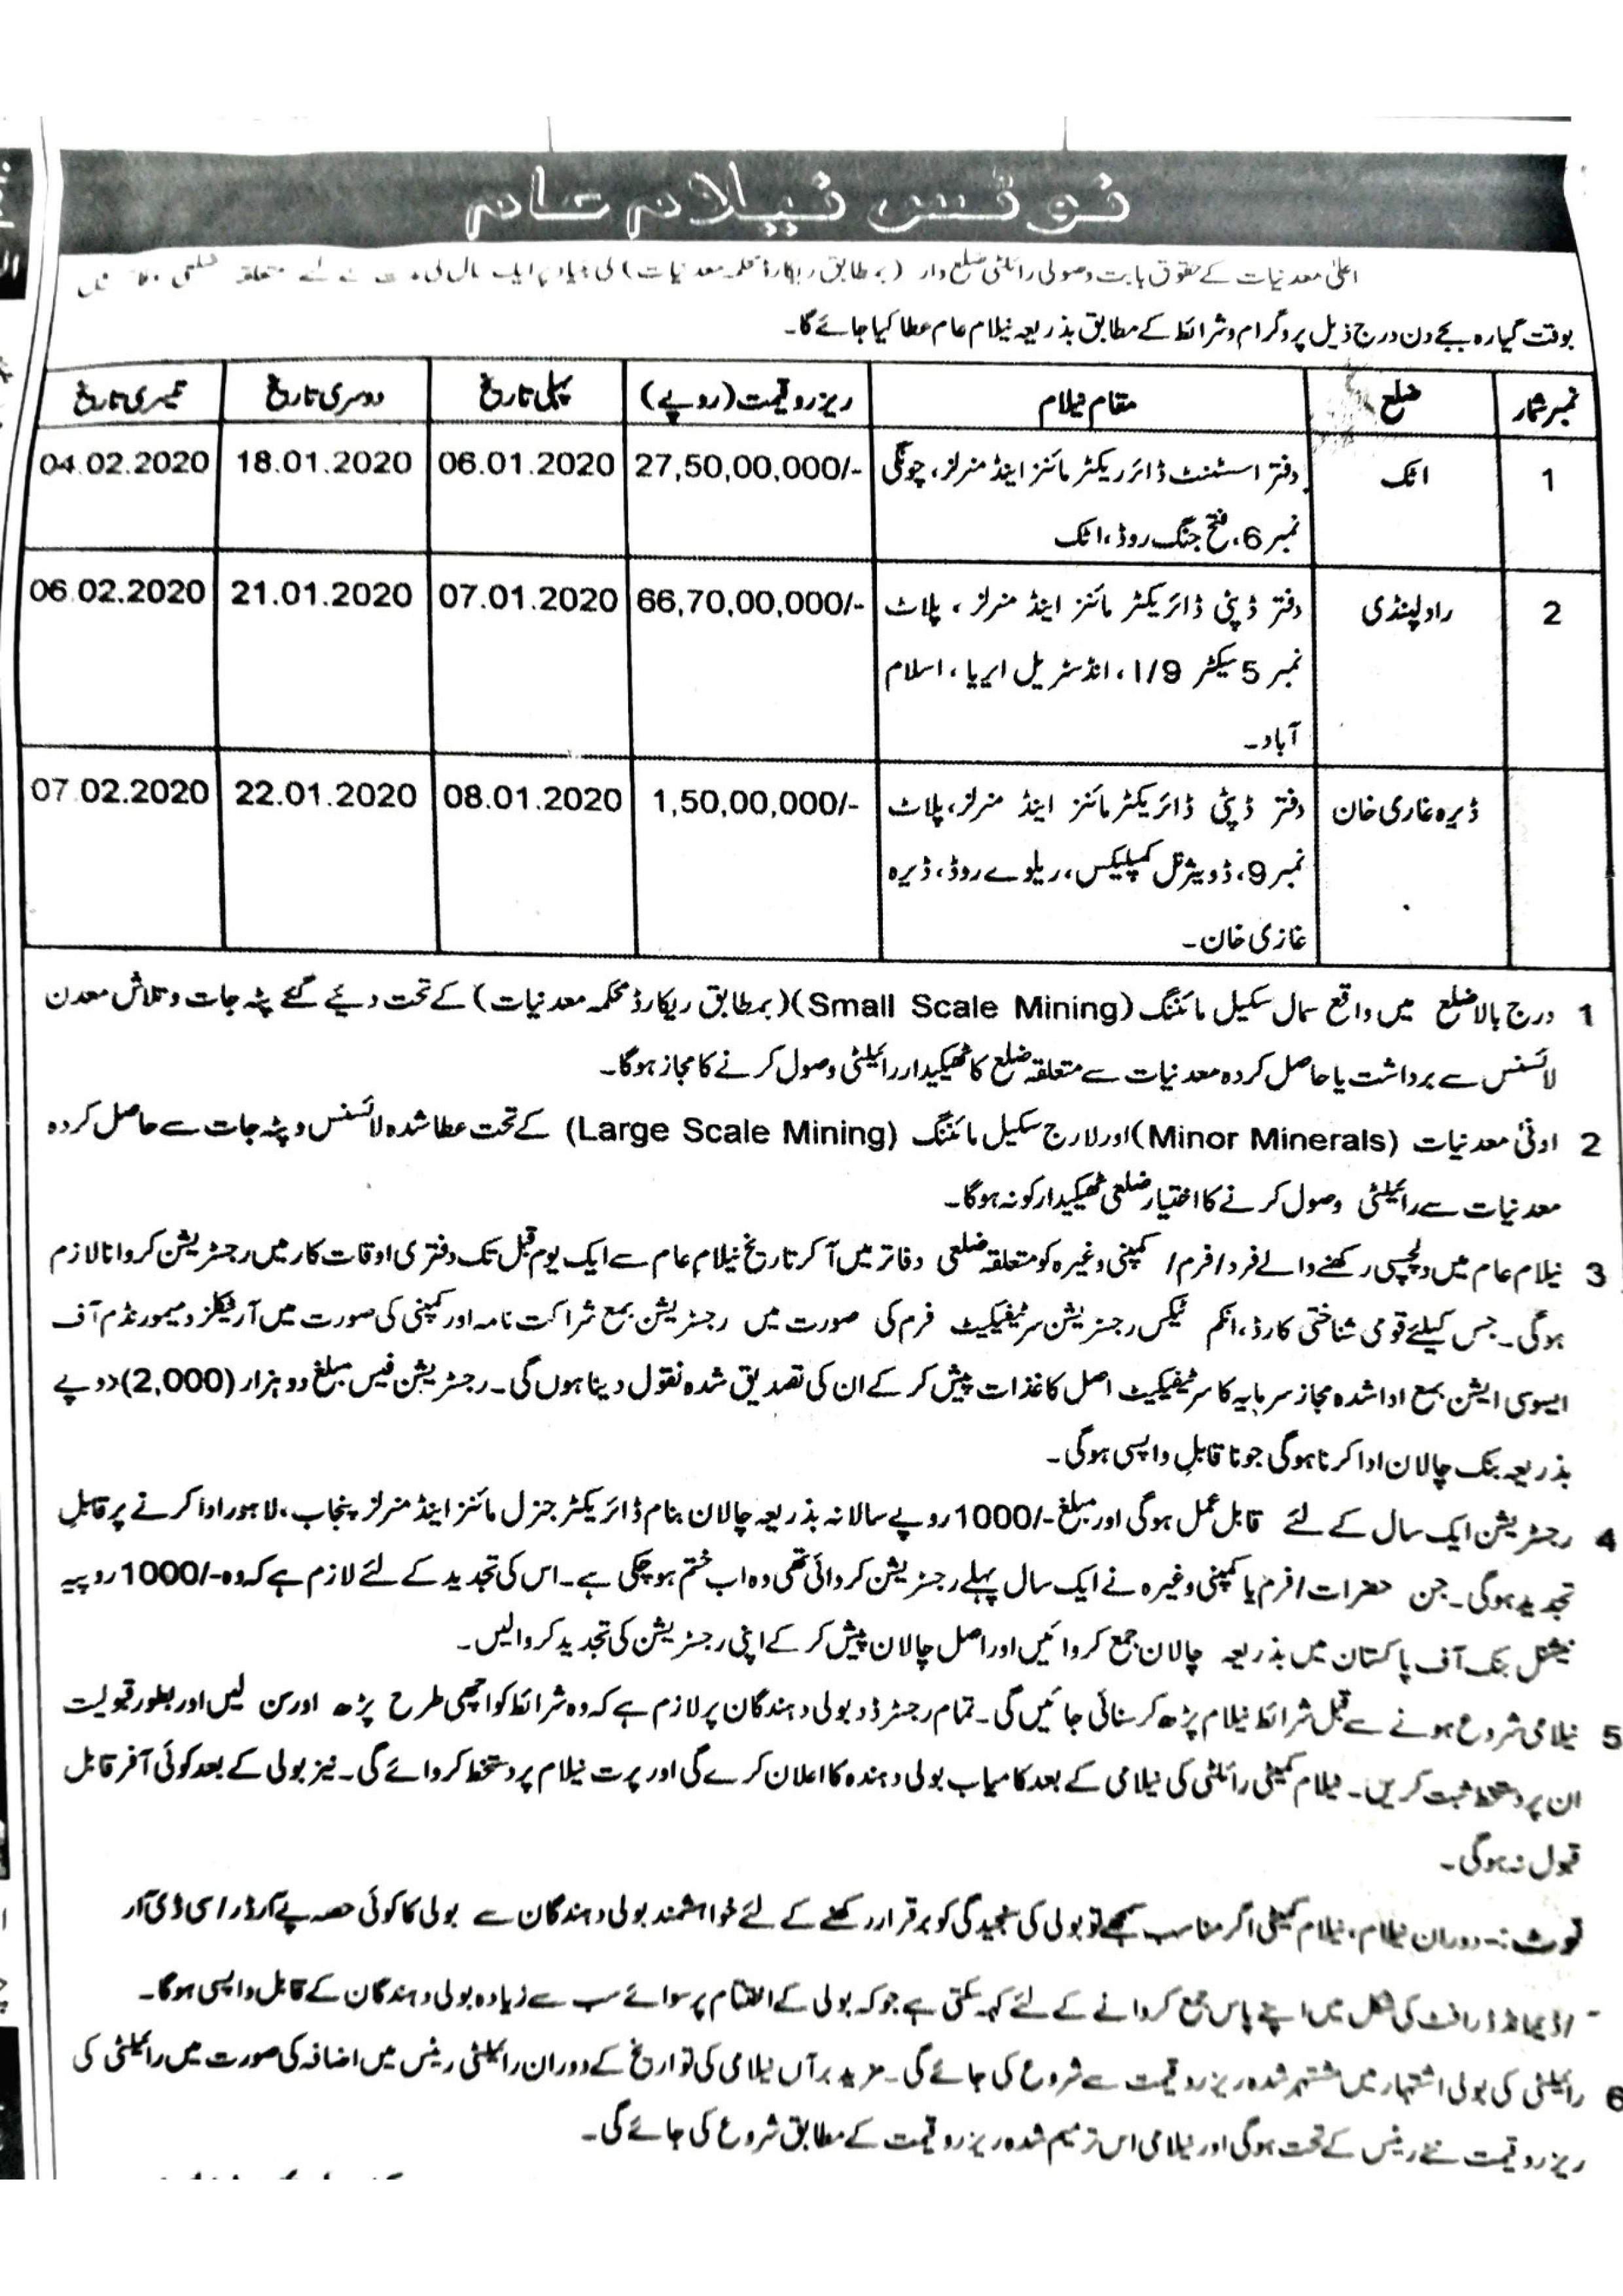 نوٹس نیلام عام
اعلیٰ معدنیات کے حقوق بابت وصولی رائلٹی ضلع وار (بمطابق ریکارڈ محکمہ معدنیات) کی بنیاد پر ایک سال کی
بوقت گیارہ بجے دن درج ذیل پروگرام و شرائط کے مطابق بذریعہ نیلام عام عطا کیا جائے گا۔
نمبر شمار ضلع مقام نیلام ریزرو قیمت (روپے) پہلی تاریخ دوسری تاریخ تیسری تاریخ
1 اٹک دفتر اسسٹنٹ ڈائریکٹر مائنز اینڈ منرلز، چونگی 27,50,00,000/- 06.01.2020 18.01.2020 04.02.2020
نمبر 6، فتح جنگ روڈ، اٹک
2 راولپنڈی دفتر ڈپٹی ڈائریکٹر مائنز اینڈ منرلز، پلاٹ 66,70,00,000/- 07.01.2020 21.01.2020 06.02.2020
نمبر 5 سیکٹر I/9، انڈسٹریل ایریا، اسلام
آباد۔
ڈیرہ غازی خان دفتر ڈپٹی ڈائریکٹر مائنز اینڈ منرلز، پلاٹ 1,50,00,000/- 08.01.2020 22.01.2020 07.02.2020
نمبر 9، ڈویژنل کمپلیکس، ریلوے روڈ، ڈیرہ
غازی خان۔
1 درج بالا ضلع میں واقع سمال سکیل مائننگ (Small Scale Mining) (بمطابق ریکارڈ محکمہ معدنیات) کے تحت دیئے گئے پٹہ جات و تلاش معدن
لائسنس سے برداشت یا حاصل کردہ معدنیات سے متعلقہ ضلع کا ٹھیکیدار رائیلٹی وصول کرنے کا مجاز ہوگا۔
2 ادنیٰ معدنیات (Minor Minerals) اور لارج سکیل مائننگ (Large Scale Mining) کے تحت عطا شدہ لائسنس و پٹہ جات سے حاصل کردہ
معدنیات سے رائیلٹی وصول کرنے کا اختیار ضلعی ٹھیکیدار کو نہ ہوگا۔
3 نیلام عام میں دلچسپی رکھنے والے فرد/فرم/ کمپنی وغیرہ کو متعلقہ ضلعی دفاتر میں آکر تاریخ نیلام عام سے ایک یوم قبل تک دفتری اوقات کار میں رجسٹریشن کروانا لازم
ہوگی۔ جس کیلئے قومی شناختی کارڈ، انکم ٹیکس رجسٹریشن سرٹیفیکیٹ فرم کی صورت میں رجسٹریشن بمع شراکت نامہ اور کمپنی کی صورت میں آرٹیکلز و میمورنڈم آف
ایسوسی ایشن بمع ادا شدہ مجاز سرمایہ کا سرٹیفیکیٹ اصل کاغذات پیش کر کے ان کی تصدیق شدہ نقول دینا ہوں گی۔ رجسٹریشن فیس مبلغ دو ہزار (2,000) روپے
بذریعہ بنک چالان ادا کرنا ہوگی جو نا قابلِ واپسی ہوگی۔
4 رجسٹریشن ایک سال کے لئے قابل عمل ہوگی اور مبلغ -/1000 روپے سالانہ بذریعہ چالان بنام ڈائریکٹر جنرل مائنز اینڈ منرلز پنجاب، لاہور ادا کرنے پر قابلِ
تجدید ہوگی۔ جن حضرات/فرم یا کمپنی وغیرہ نے ایک سال پہلے رجسٹریشن کروائی تھی وہ اب ختم ہو چکی ہے۔ اس کی تجدید کے لئے لازم ہے کہ وہ -/1000 روپیہ
نیشنل بنک آف پاکستان میں بذریعہ چالان جمع کروائیں اور اصل چالان پیش کر کے اپنی رجسٹریشن کی تجدید کروالیں۔
5 نیلامی شروع ہونے سے قبل شرائط نیلام پڑھ کر سنائی جائیں گی۔ تمام رجسٹرڈ بولی دہندگان پر لازم ہے کہ وہ شرائط کو اچھی طرح پڑھ اور سن لیں اور بطور قبولیت
ان پر دستخط ثبت کریں۔ نیلام کمیٹی رائلٹی کی نیلامی کے بعد کامیاب بولی دہندہ کا اعلان کرے گی اور پرت نیلام پر دستخط کروائے گی۔ نیز بولی کے بعد کوئی آفر قابل
قبول نہ ہوگی۔
نوٹ:- دوران نیلام، نیلام کمیٹی اگر مناسب سمجھے تو بولی کی سنجیدگی کو برقرار رکھنے کے لئے خواہشمند بولی دہندگان سے بولی کا کوئی حصہ پے آرڈر/سی ڈی آر
/ڈیمانڈ ڈرافٹ کی شکل میں اپنے پاس جمع کروانے کے لئے کہہ سکتی ہے جو کہ بولی کے اختتام پر سوائے سب سے زیادہ بولی دہندگان کے قابل واپسی ہوگا۔
6 رائیلٹی کی بولی اشتہار میں مشتہر شدہ ریزرو قیمت سے شروع کی جائے گی۔ مزید برآں نیلامی کی تواریخ کے دوران رائیلٹی ریٹس میں اضافہ کی صورت میں رائیلٹی کی
ریزرو قیمت نئے ریٹس کے تحت ہوگی اور نیلامی اس ترمیم شدہ ریزرو قیمت کے مطابق شروع کی جائے گی۔